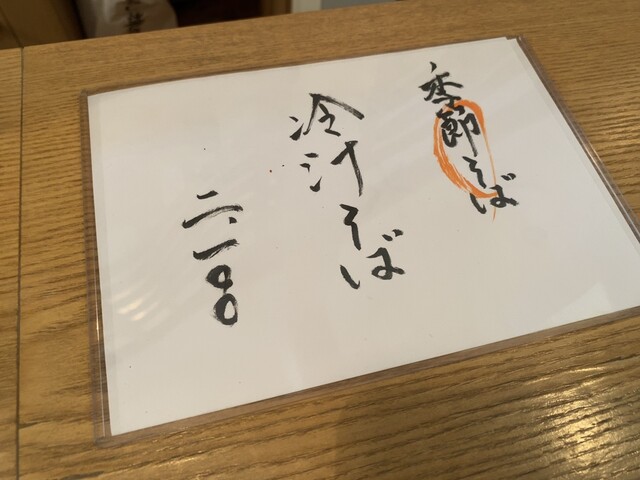 季節そば
冷汁そば
二、一〇〇